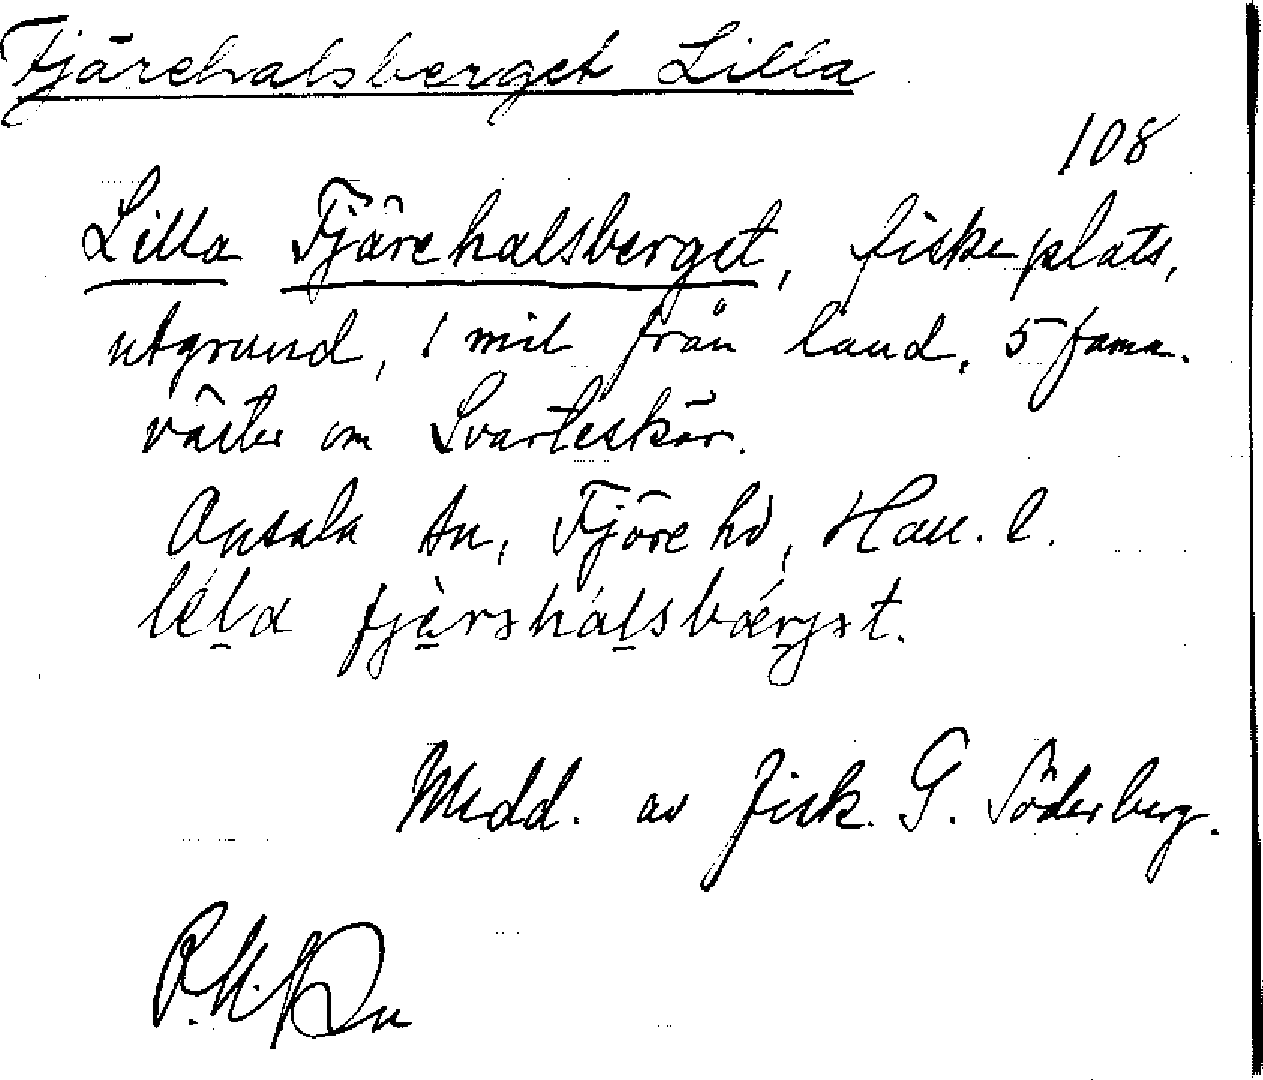 Fjärehalsberget Lilla
108
Lilla Fjärehalsberget, fiskeplats,
utgrund, 1 mil från land, 5 famn.
väster om Svarteskär.
Onsala sn, Fjäre hd, Hall. l.
Medd. av fisk. G. Söderberg.